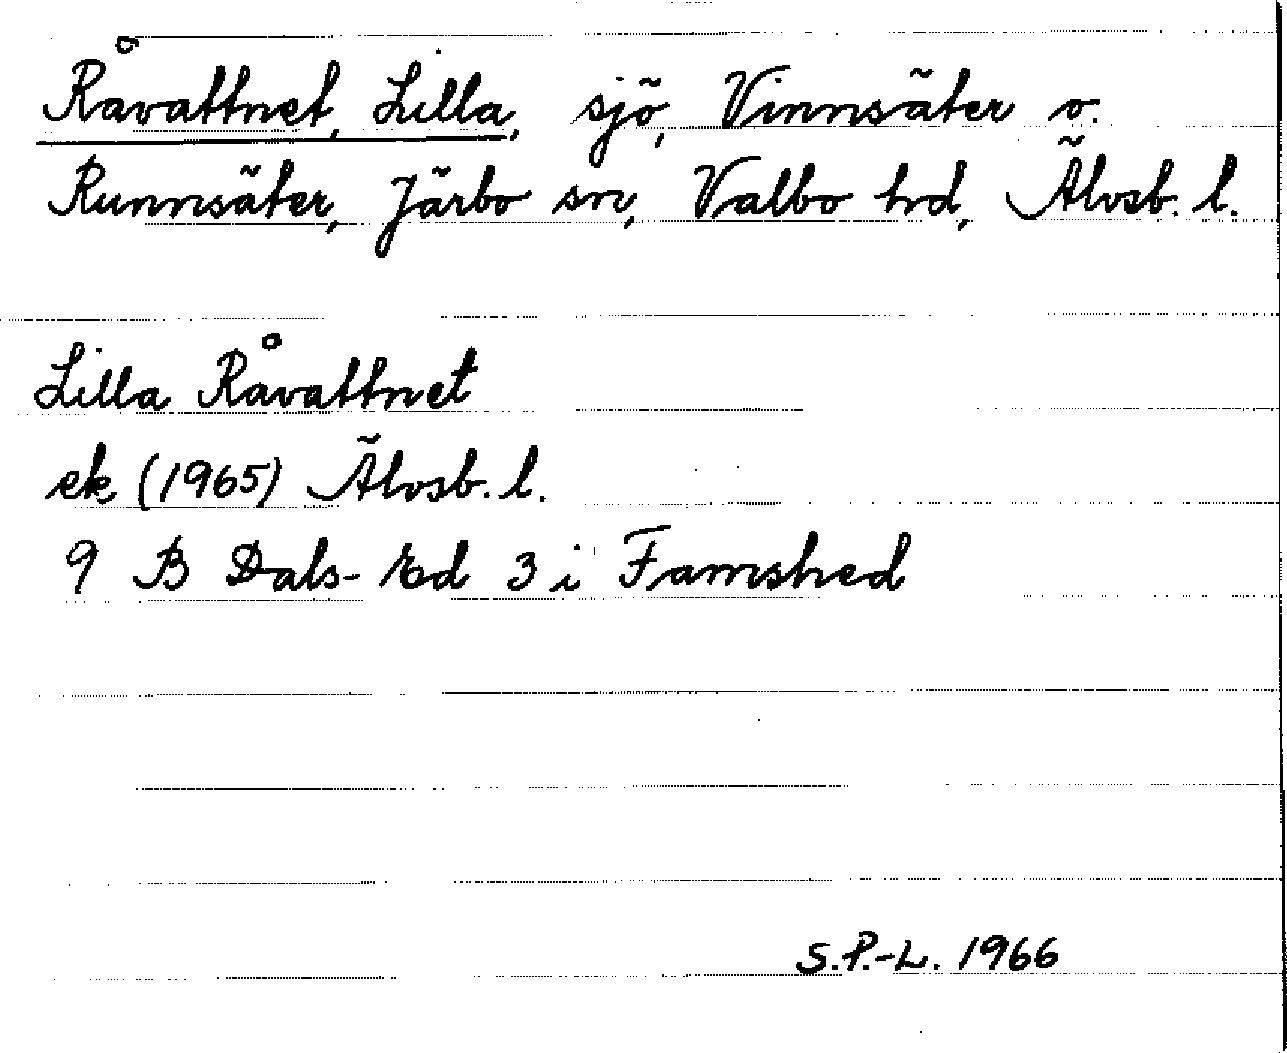 Råvattnet, Lilla, sjö, Vinnsäter o.
Runnsäter, Järbo sn, Valbo hd, Älvsb. l.
Lilla Råvattnet
ek (1965) Älvsb. l.
9 B Dals-Ed 3 i Framshed
S.P.-L. 1966